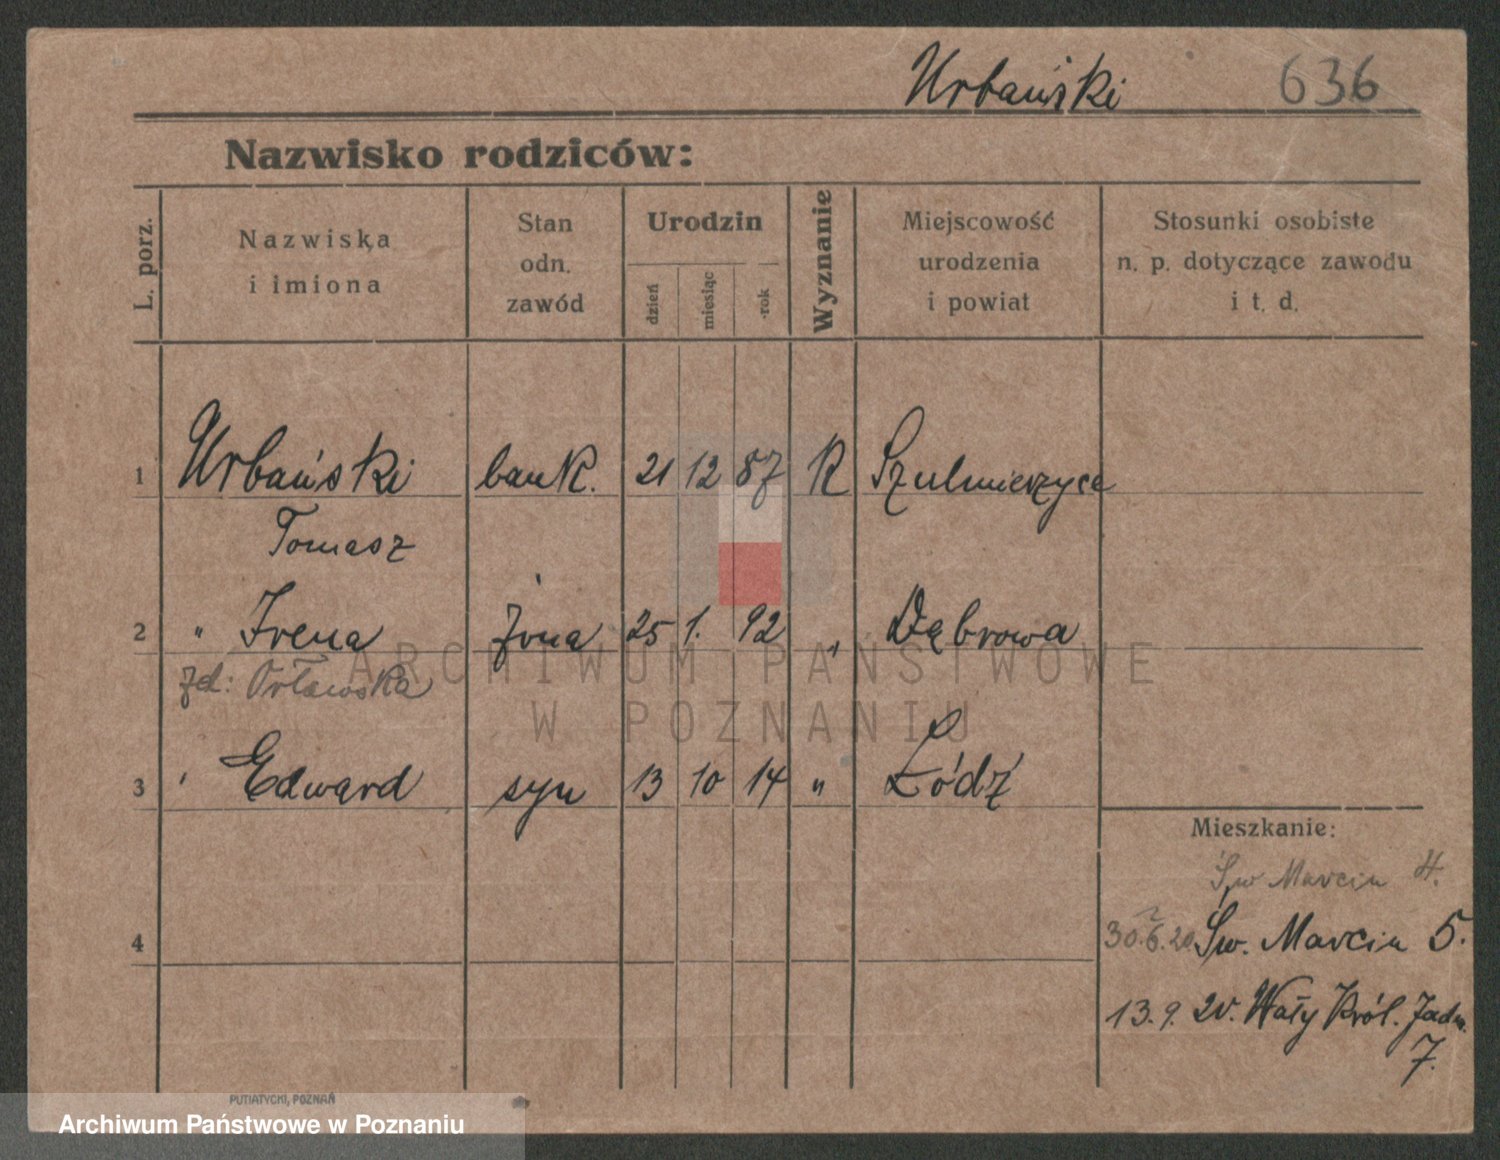 Urbański 636
Nazwisko rodziców:
L. porz.
Nazwiska
i imiona
Stan
odn.
zawód
Urodzin
dzień
miesiąc
rok
Wyznanie
Miejscowość
urodzenia
i powiat
Stosunki osobiste
n. p. dotyczące zawodu
i t. d.
1 Urbański bank. 21 12 87 R Szulmierzyce
Tomasz
2 " Irena żona 25 1. 92 " Dąbrowa
zd: Orłowska
3 " Edward syn 13 10 14 " Łódź
Mieszkanie:
Św Marcin 4.
4
30.6.20. Św. Marcin 5.
13.9. 20. Wały Król. Jadw.
7.
PUTIATYCKI, POZNAŃ
ARCHIWUM PAŃSTWOWE
W POZNANIU
Archiwum Państwowe w Poznaniu